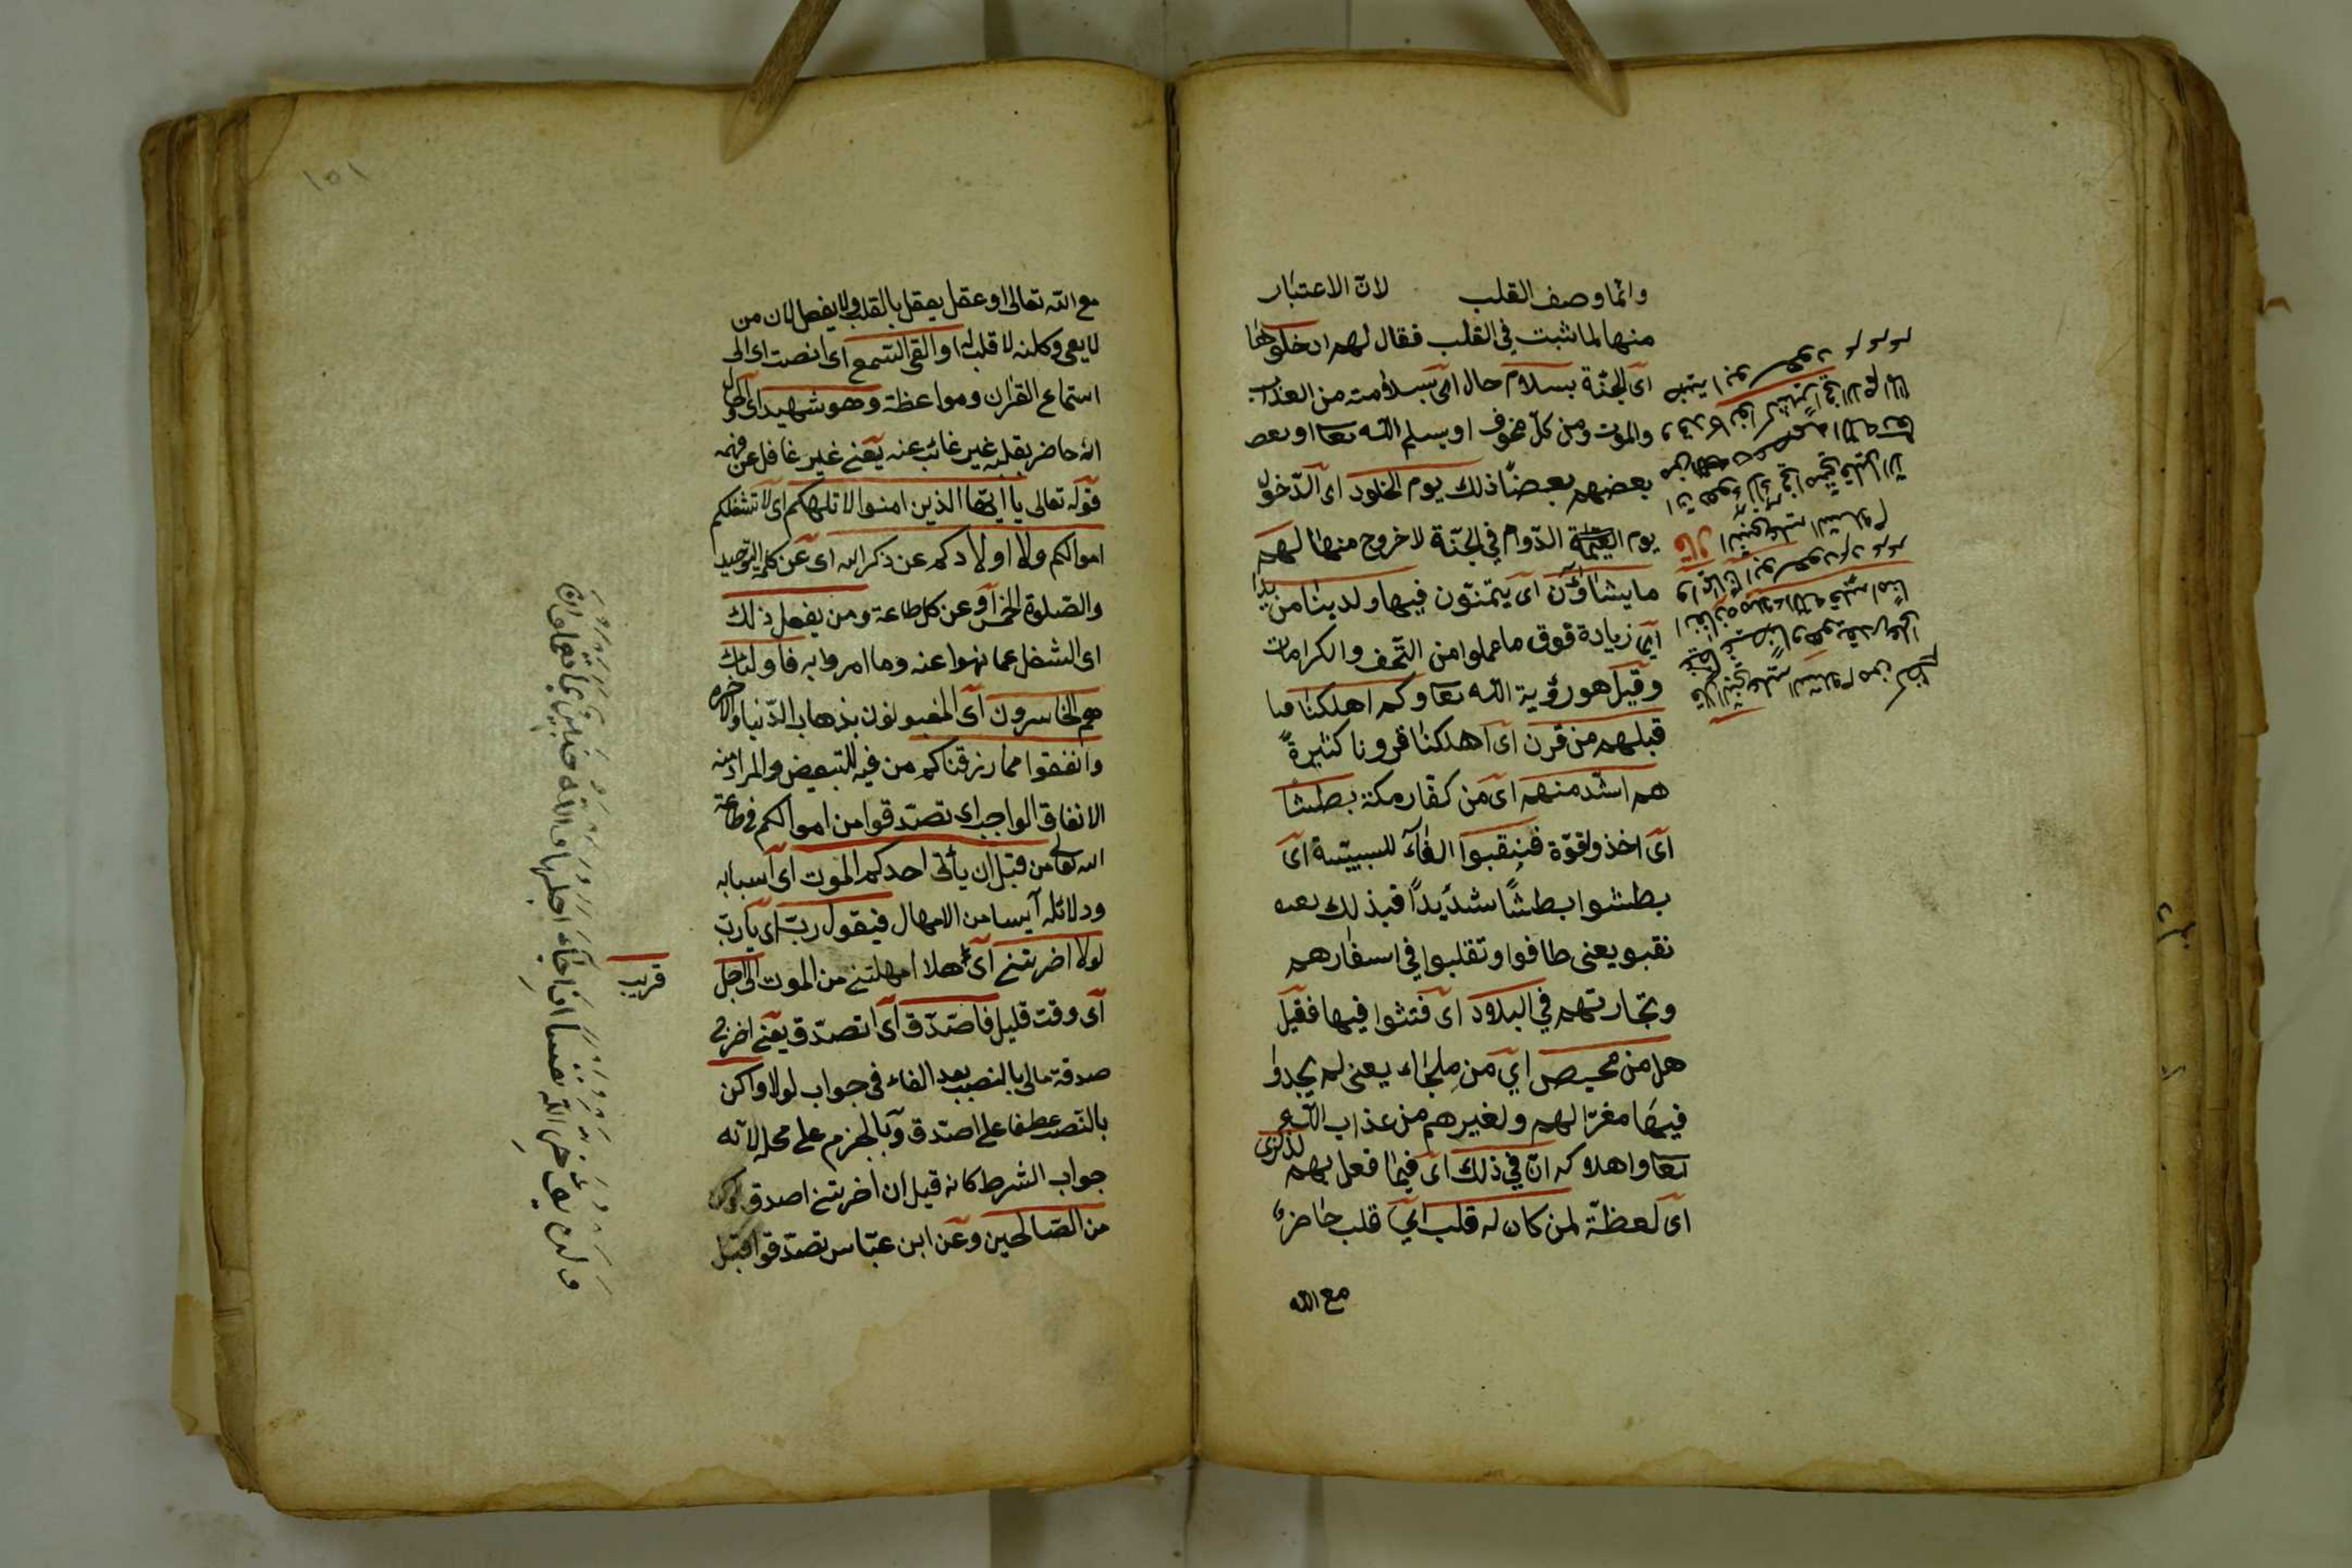 وانما وصف القلب لان الاعتبار
منها لما ثبت في القلب فقال لهم ادخلوها
اى الجنّة بسلام حال اى بسلامة من العذاب
والموت ومن كل مخوف او يسلم الله تعا وبعض
بعضهم بعضًا ذلك يوم الخلود اى الدّخول
يوم القيمة الدّوام في الجنّة لا خروج منها لهم
ما يشاؤن اى يتمنّون فيها ولدينا مزيد
اى زيادة فوق ما عملوا من التحف والكرامات
وقيل هو رؤية الله تعا وكم اهلكنا ما
قبلهم من قرن اى اهلكنا قرونا كثيرةً
هم اشد منهم اى من كفار مكة بطشا
اى اخذ ولقوّة فنقبوا الفآء للسببيّة اى
بطشوا بطشًا شديدًا فبذلك بعد
نقبو يعنى طافوا وتقلبوا في اسفارهم
وتجارتهم في البلاد اى فتشوا فيها فقيل
هل من محيص اي من ملجاء يعنى لم يجدوا
فيها مفرّا لهم ولغيرهم من عذاب الله
تعا واهلاكه انّ في ذلك اى فيما فعل بهم لذكرى
اى لعظة لمن كان له قلب اي قلب حاضر
مع الله
قال النبي عليه السلام من كظم
غيظًا وهو يقدر على
انفاذه ملاء الله قلبه امنًا
وايمانا ابو سعود
قال النبي عليه السلام
١٥١
مع الله تعالى او عقل يعقل بالقلب ولا يفعل لان من
لا يعى وكانه لا قلب له او القى السّمع اى انصت اى الى
استماع القرآن ومواعظة وهو شهيد اى الحال
انه حاضر بقلبه غير غائب عنه يعنى غير غافل عن فهمه
قوله تعالى يا ايّها الذين امنوا لا تلهكم اى لا تشغلكم
اموالكم ولا اولادكم عن ذكر الله اى عن كلمة التوحيد
والصّلوة الخمس او عن كل طاعة ومن يفعل ذلك
اى الشغل عما نهوا عنه وما امروا به فاولئك
هم الخاسرون اى المغبونون بذهاب الدّنيا والآخرة
وانفقوا مما رزقناكم من فيه للتبعض والمراد منه
الانفاق الواجب اى تصدّقوا من اموالكم فى طاعة
الله تعالى من قبل ان يأتى احدكم الموت اى اسبابه
ودلائله آيسا من الامهال فيقول ربّ اى يا ربّ
لولا اخرتنى اى هلا امهلتنى من الموت الى اجل
قريب
اى وقت قليل فاصّدّق اى اتصدّق يعنى اخرج
صدقة مالى بالنصب بعد الفاء فى جواب لولا واكن
بالنّصب عطفا على اصدق وبالجزم على محلّ لانّه
جواب الشرط كانه قيل ان اخرتنى اصدق واكن
من الصّالحين وعن ابن عبّاس تصدّقوا قبل
ولن يؤخر الله نفسا اذا جاء اجلها والله خبير بما تعملون